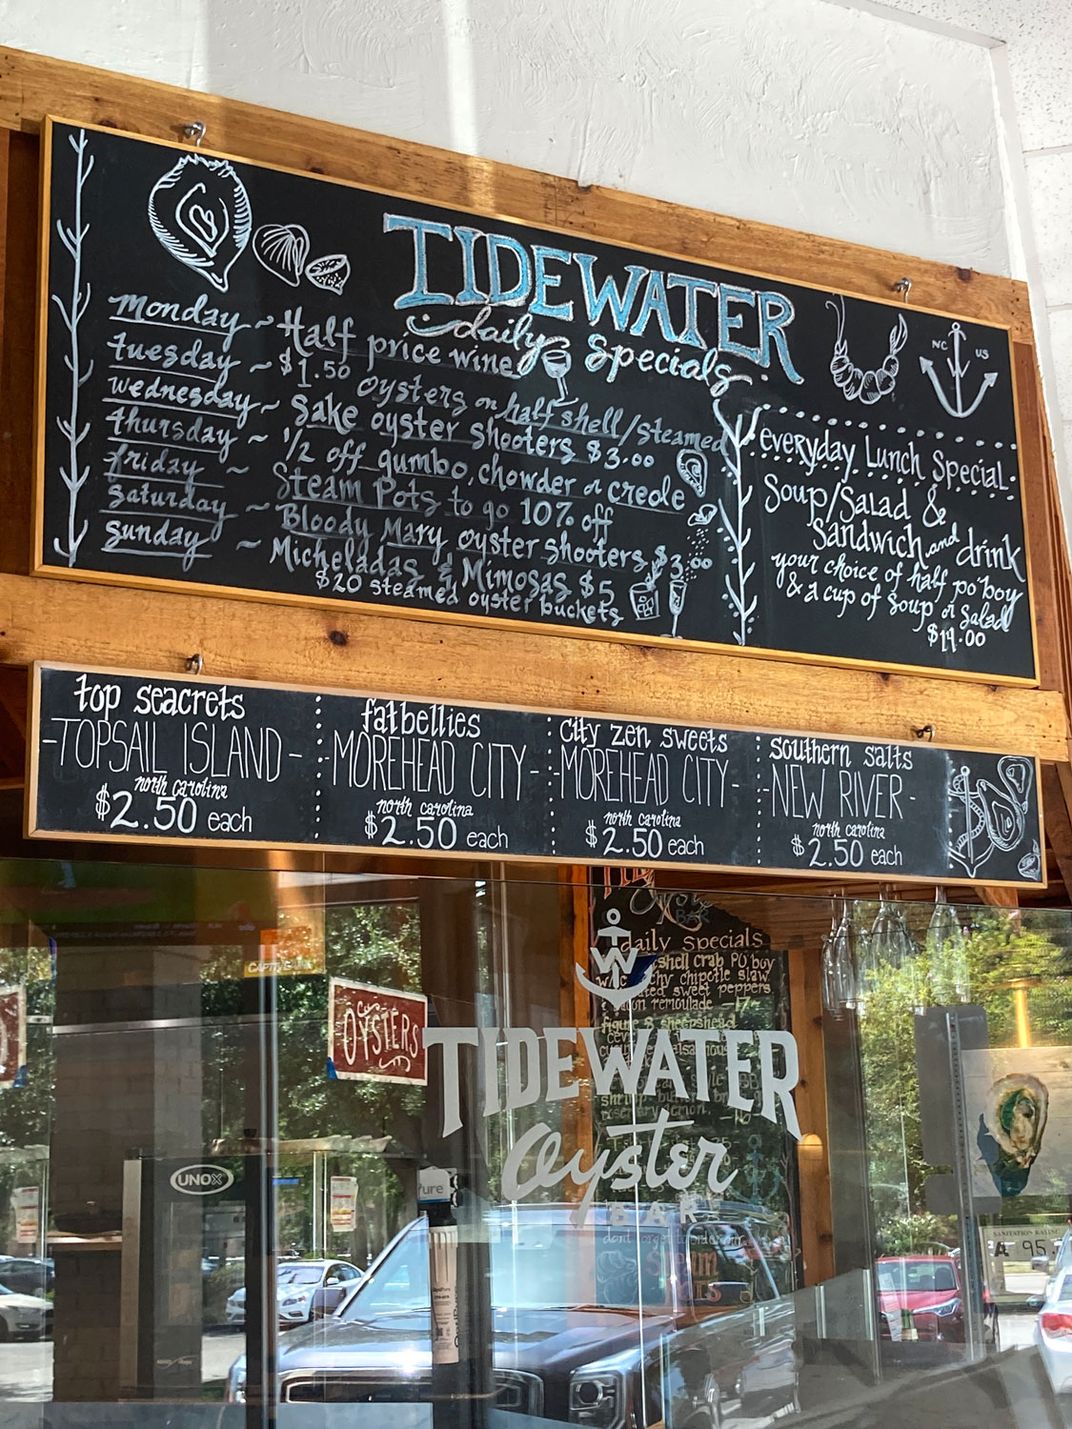 TIDEWATER
daily specials
Monday ~ Half price wine
tuesday ~ $1.50 oysters on half shell/steamed
wednesday ~ Sake oyster shooters $3.00
thursday ~ 1/2 off gumbo, chowder or creole
friday ~ Steam Pots to go 10% off
saturday ~ Bloody Mary oyster shooters $3.00
sunday ~ Micheladas & Mimosas $5
$20 steamed oyster buckets
NC US
everyday Lunch Special
Soup/Salad &
Sandwich and drink
your choice of half po'boy
& a cup of soup or salad
top seacrets
-TOPSAIL ISLAND-
north carolina
$2.50 each
fatbellies
-MOREHEAD CITY-
north carolina
$2.50 each
city zen sweets
-MOREHEAD CITY-
north carolina
$2.50 each
southern salts
-NEW RIVER-
north carolina
$2.50 each
OYSTER
BAR
daily specials
shell crab PO boy
chipotle slaw
sweet peppers
remoulade
sheepshead
OYSTERS
TW
TIDEWATER
Oyster
BAR
UNOX
SANITATION RATING
A 95.